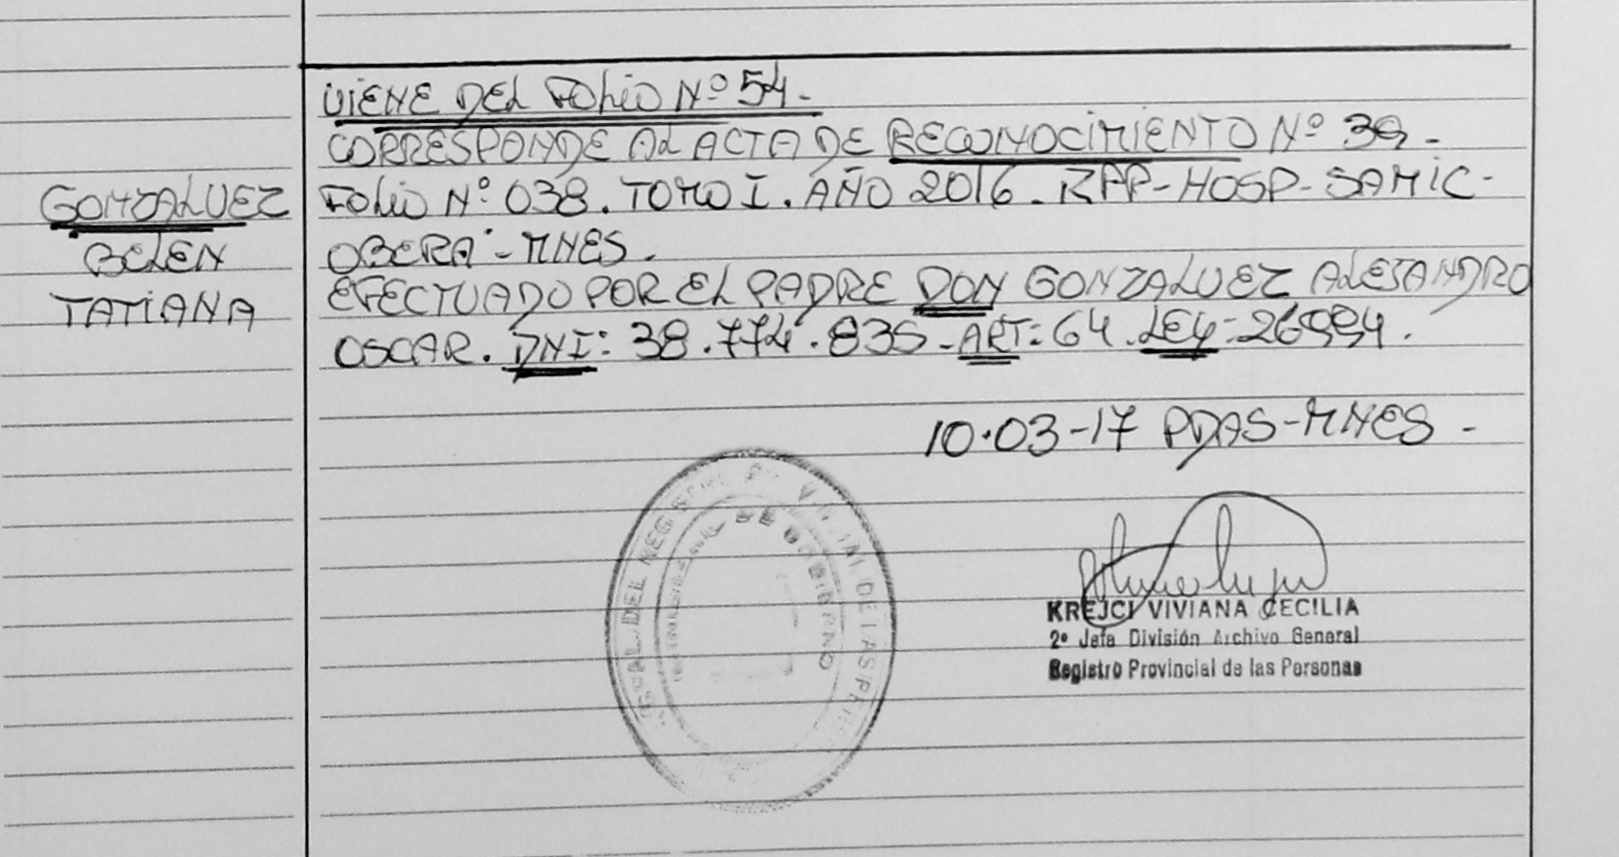 VIENE DEL FOLIO Nº 54.
CORRESPONDE AL ACTA DE RECONOCIMIENTO Nº 39.
GONZALUEZ
BELEN
TATIANA
FOLIO Nº 038. TOMO I. AÑO 2016. RPP-HOSP-SAMIC-
OBERA-MNES.
EFECTUADO POR EL PADRE DON GONZALUEZ ALEJANDRO
OSCAR. DNI: 38.774.835-ART: 64. LEY-26994.
10.03-17 PDAS-MNES-
KREJCI VIVIANA CECILIA
2º Jefa División Archivo General
Registro Provincial de las Personas
DE LAS
DE GOBIERNO